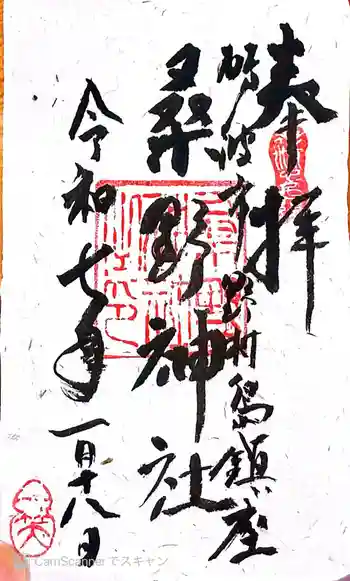 奉拝
砺波市野村島鎮座
桑野神社
令和七年
一月十八日
CamScannerでスキャン